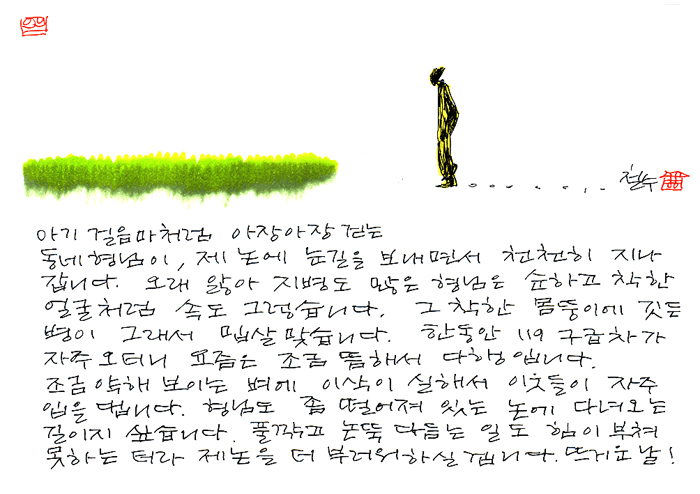 철수
아기 걸음마처럼 아장아장 걷는
동네형님이, 제 논에 눈길을 보내면서 천천히 지나
갑니다. 오래 앓아 지병도 많은 형님은 순하고 착한
얼굴처럼 속도 그렇습니다. 그 착한 몸뚱이에 깃든
병이 그래서 밉살맞습니다. 한동안 119 구급차가
자주 오더니 요즘은 조금 뜸해서 다행입니다.
조금 약해 보이는 벼에 이삭이 실해서 이웃들이 자주
입을 댑니다. 형님도 좀 떨어져 있는 논에 다녀오는
길이지 싶습니다. 풀깎고 논뚝 다듬는 일도 힘이 부쳐
못하는 터라 제논을 더 부러워하실 겝니다. 뜨거운 날!